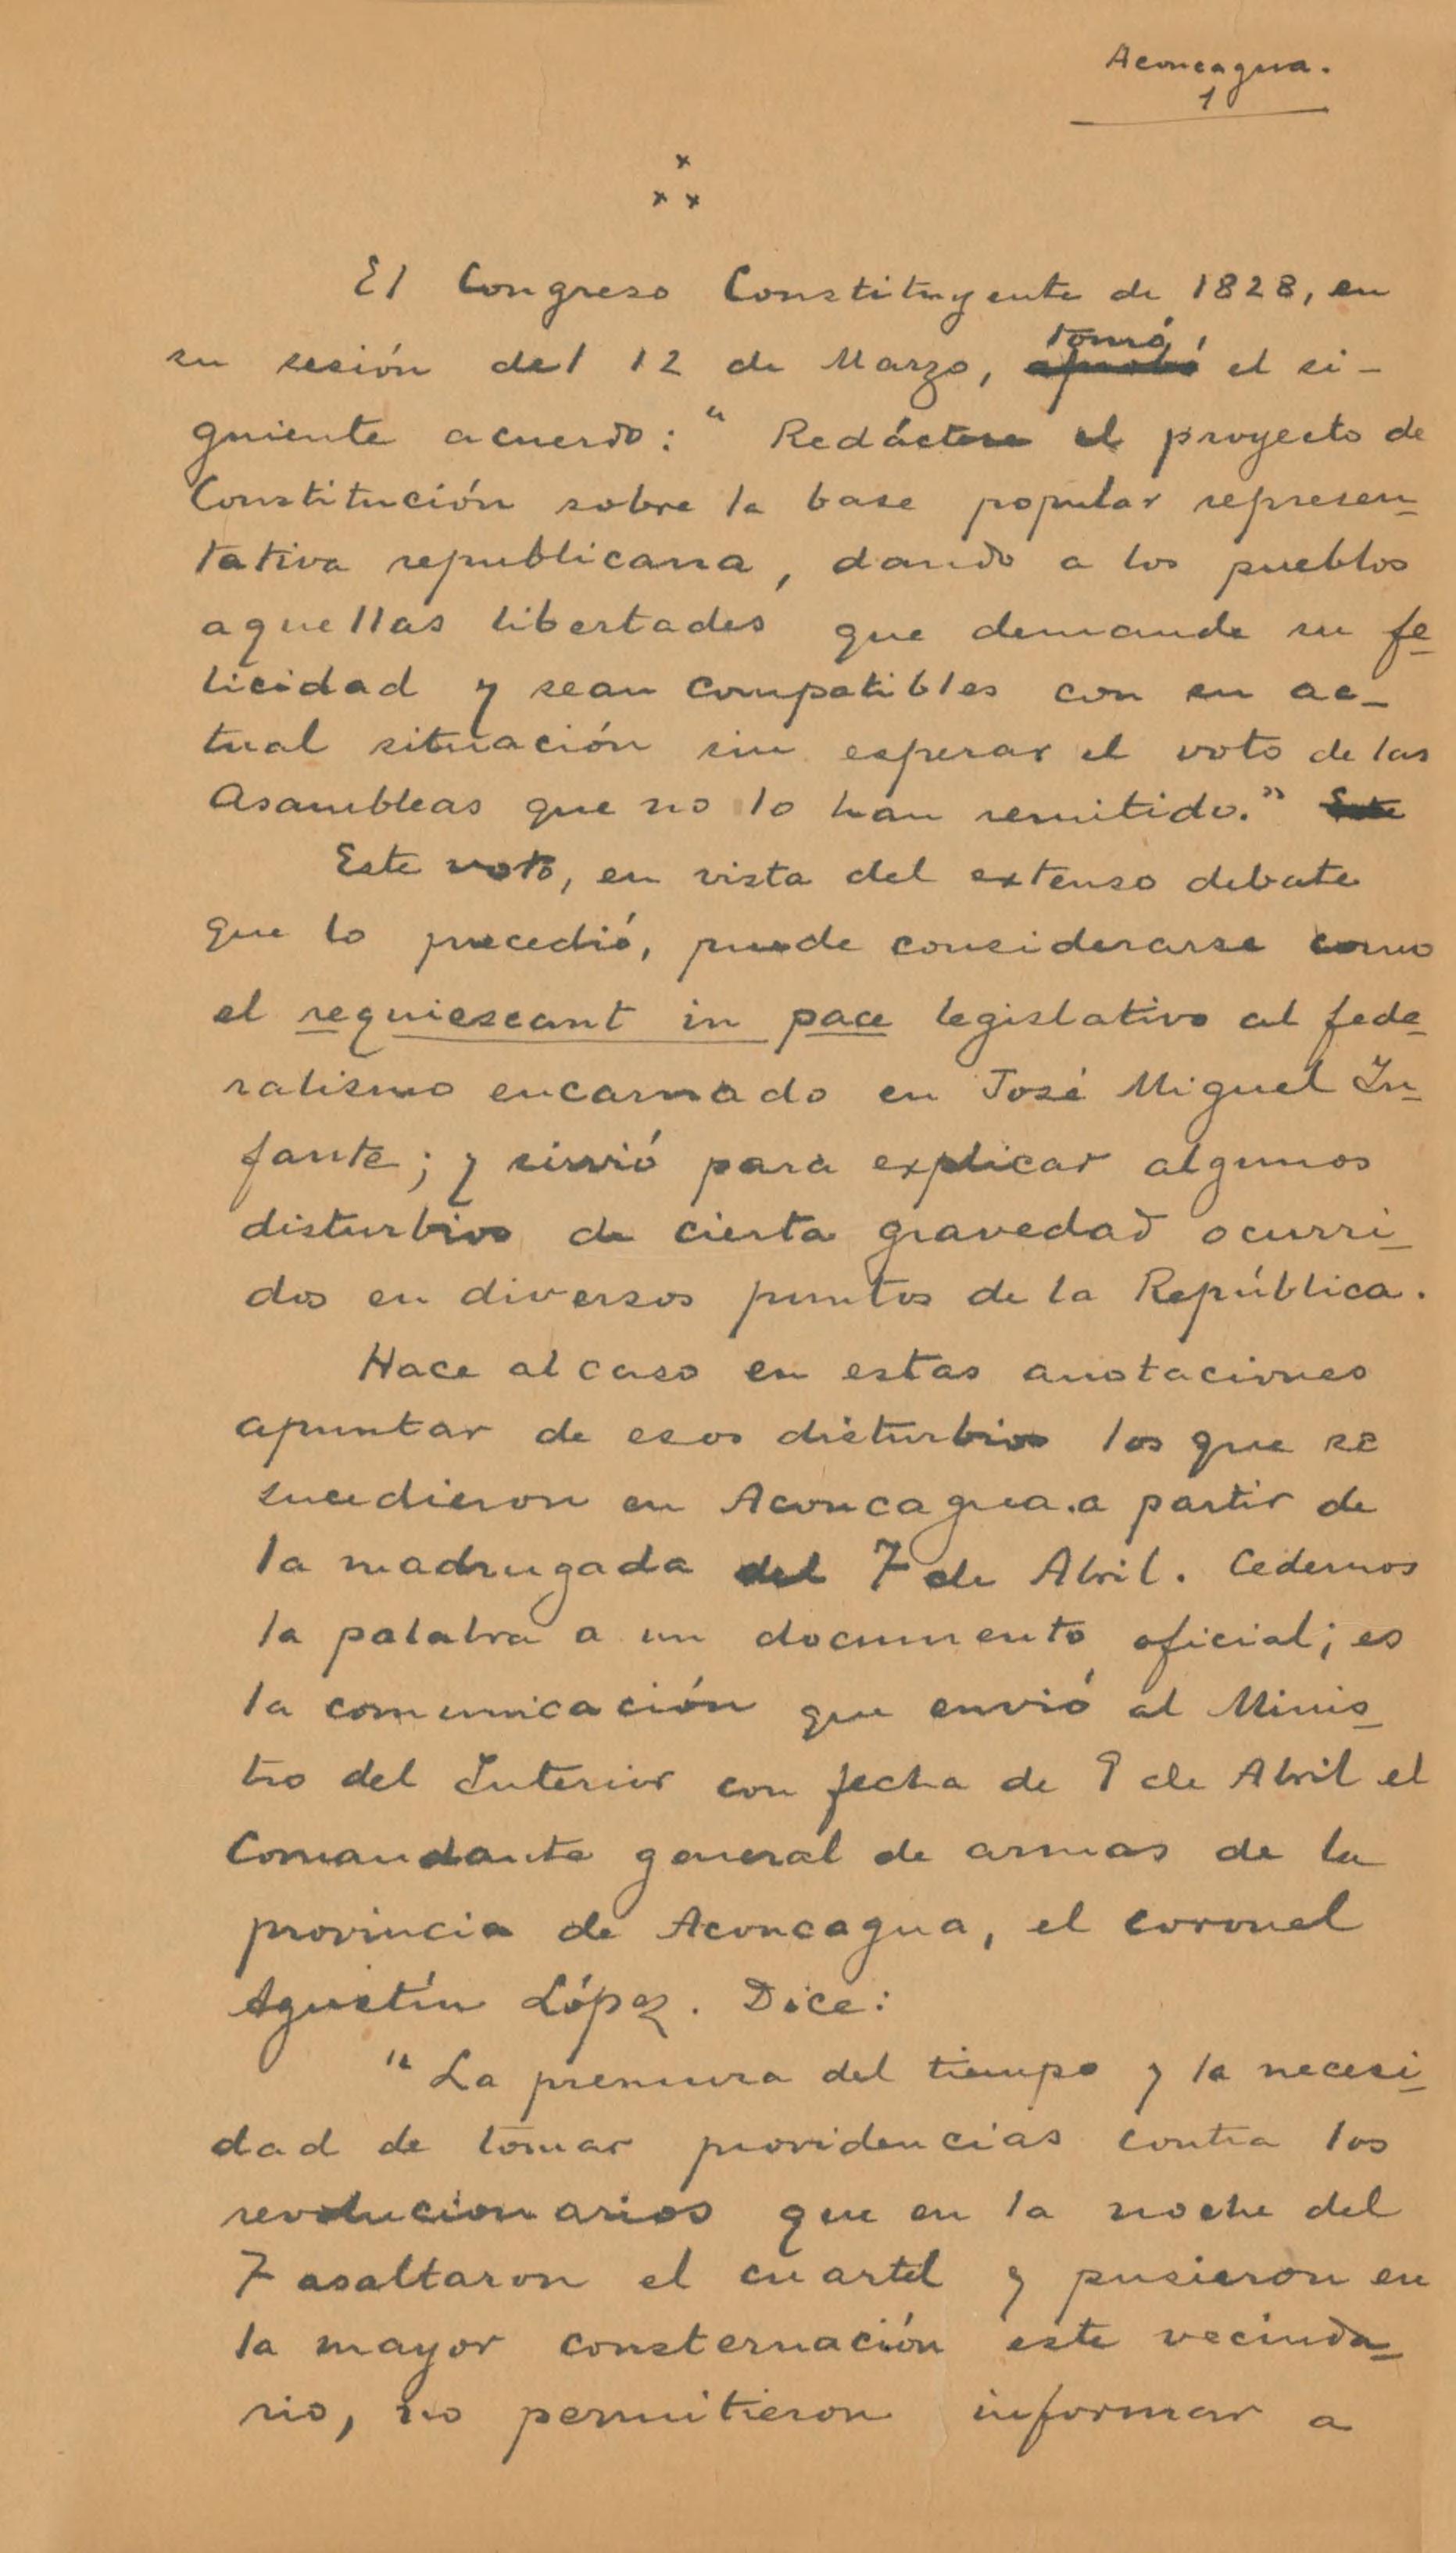 Aconcagua.
1
x
x x
El Congreso Constituyente de 1828, en
tomó,
su sesión del 12 de Marzo, aprobó el si-
guiente acuerdo: " Redáctese el proyecto de
Constitución sobre la base popular represen-
tativa republicana, dando a los pueblos
aquellas libertades que demande su fe-
licidad y sean compatibles con su ac-
tual situación sin esperar el voto de las
Asambleas que no lo han remitido." Este
Este voto, en vista del extenso debate
que lo precedió, puede considerarse como
el requiescant in pace legislativo al fede-
ralismo encarnado en José Miguel In-
fante; y sirvió para explicar algunos
disturbios de cierta gravedad ocurri-
dos en diversos puntos de la República.
Hace al caso en estas anotaciones
apuntar de esos disturbios los que se
sucedieron en Aconcagua a partir de
la madrugada del 7 de Abril. Cedemos
la palabra a un documento oficial; es
la comunicación que envió al Minis-
tro del Interior con fecha de 9 de Abril el
Comandante general de armas de la
provincia de Aconcagua, el coronel
Agustín López. Dice:
"La premura del tiempo y la necesi-
dad de tomar providencias contra los
revolucionarios que en la noche del
7 asaltaron el cuartel y pusieron en
la mayor consternación este vecinda-
rio, no permitieron informar a